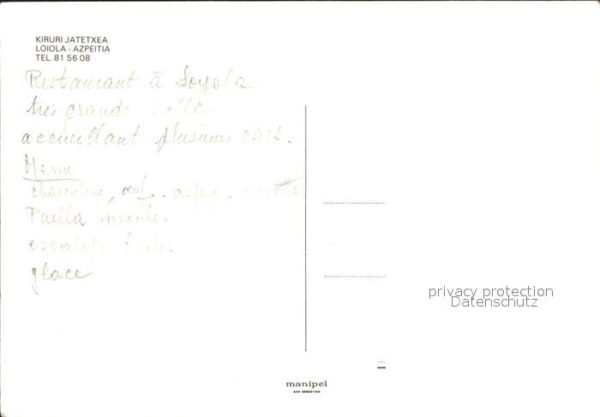 KIRURI JATETXEA
LOIOLA - AZPEITIA
TEL. 81 56 08
Restaurant à Loyola
très grande salle
accueillant plusieurs cars.
Menu
charcuterie, oeuf,
Paella
escalope frites
glace
privacy protection
Datenschutz
manipel
SAN SEBASTIAN